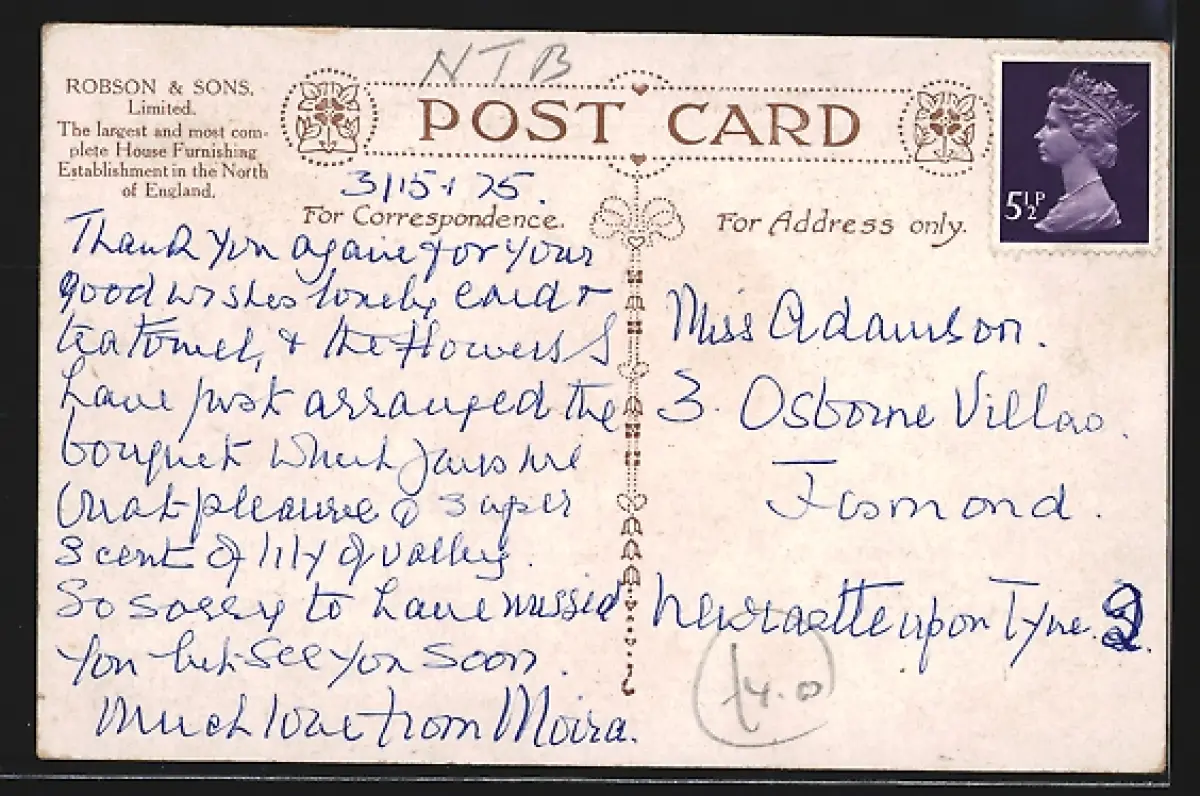 NTB
ROBSON & SONS,
Limited.
The largest and most com-
plete House Furnishing
Establishment in the North
of England.
POST CARD
5½P
3/15+ 75.
For Correspondence.
For Address only.
Thank you again for your
good wishes lovely card +
tea towel, + the flowers I
have just arranged the
bouquet which gives me
great pleasure & super
scent of lily of valley.
So sorry to have missed
you but see you soon.
Much love from Moira.
Miss Adamson.
3. Osborne Villas.
Jesmond.
Newcastle upon Tyne. 2.